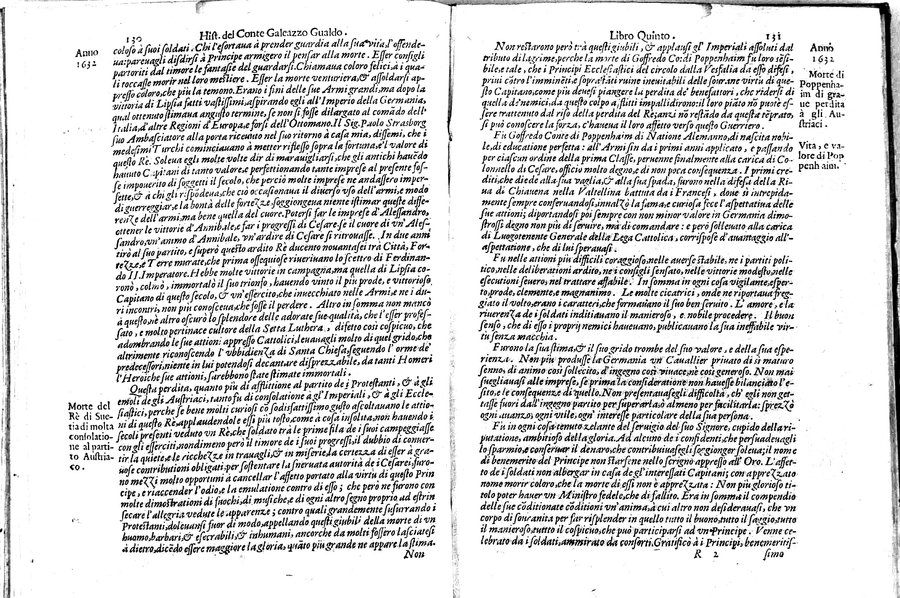 130 Hist. del Conte Galeazzo Gualdo.
Anno
1632
coloso à suoi soldati. Chi l'esortaua à prender guardia alla sua vita, l'offende-
ua: pareuagli disdirsi à Prencipe armigero il pensar alla morte. Esser consigli
partoriti dal timore le fantasie del guardarsi. Chiamaua coloro felici, à i qua-
li toccasse morir nel loro mestiere. Esser la morte venturiera, & assoldarsi ap-
presso coloro, che più la temono. Erano i fini delle sue Armi grandi, ma dopo la
vittoria di Lipsia fatti vastissimi, aspirando egli all'Imperio della Germania,
qual ottenuto stimaua angusto termine, se non si fosse dilargato al comãdo dell'
Italia, d'altre Regioni d'Europa, e forsi dell'Ottomano. Il Sig. Paolo Strasborg
suo Ambasciatore alla porta riceuto nel suo ritorno à casa mia, dissemi, che i
medesimi Turchi cominciauano à metter riflesso sopra la fortuna, e'l valore di
questo Rè. Soleua egli molte volte dir di marauigliarsi, che gli antichi hauẽdo
hauuto Capitani di tanto valore, e perfettionando tante imprese al presente fos-
se impouerito di soggetti il secolo, che perciò molte imprese ne andassero imper-
fette, & à chi gli rispõdeua, che ciò occasionaua il diuerso vso dell'armi, e modo
di guerreggiar, e la bontà delle fortezze, soggiongeua niente istimar queste diffe-
renze dell'armi, ma bene quella del cuore. Potersi far le imprese d'Alessandro,
ottener le vittorie d'Annibale, e far i progressi di Cesare se il cuore di vn'Ales-
sandro, vn'animo d'Annibale, vn'ardire di Cesare si ritrouasse. In due anni
tirò al suo partito, e superò questo ardito Rè ducento nouantasei trà Città, For-
tezze, e Terre murate, che prima ossequiose riueriuano lo scettro di Ferdinan-
do II. Imperatore. Hebbe molte vittorie in campagna, ma quella di Lipsia co-
ronò, colmò, immortalò il suo trionfo, hauendo vinto il più prode, e vittorioso
Capitano di questo secolo, & vn'essercito, che inuecchiato nelle Armi, e ne i du-
ri incontri, non più conosceua, che fosse il perdere. Altro in somma non mancò
à questo, nè altro oscurò lo splendore delle adorate sue qualità, che l'esser profes-
sato, e molto pertinace cultore della Setta Luthera, difetto così cospicuo, che
adombrando le sue attioni appresso Cattolici, leuauagli molto di quel grido, che
altrimente riconoscendo l'vbbidienza di Santa Chiesa, seguendo l'orme de'
predecessori, niente in lui potendosi decantar disprezzabile, da tanti Homeri
l'Heroiche sue attioni, sarebbono state stimate immortali.
Questa perdita, quanto più di afflittione al partito de i Protestanti, & à gli
emoli degli Austriaci, tanto fu di consolatione à gl'Imperiali, & à gli Eccle-
siastici, perche se bene molti curiosi cõ sodisfattissimo gusto ascoltauano le attio-
ni di questo Rè, applaudendole essi più tosto, come cosa insolita, non hauendo i
secoli presenti veduto vn Rè, che soldato trà le prime fila de i suoi campeggiasse
con gli esserciti, nondimeno però il timore de i suoi progressi, il dubbio di conuer-
tir le piazze, e le ricchezze in trauagli, & in miserie, la certezza di esser à gra-
uose contributioni obligati per sostentare la sneruata autorità de i Cesarei, furo-
no mezzi molto opportuni à cancellar l'affetto portato alla virtù di questo Prin
cipe, e riaccender l'odio, e la emulatione contro di esso; che però ne furono con
molte dimostrationi di fuochi, di musiche, e di ogni altro segno proprio ad estrin
secar l'allegria vedute le apparenze; contro quali grandemente susurrando i
Protestanti, doleuansi fuor di modo, appellando questi giubili della morte di vn
huomo, barbari, & esecrabili, & inhumani, ancorche da molti fossero lasciarsi
à dietro, dicẽdo essere maggiore la gloria, quãto più grande ne appare la stima.
Non
Morte del
Rè di Sue-
tia di molta
consolatio-
ne al parti-
to Austria-
co.
Libro Quinto. 131
Non restarono però trà questi giubili, & applausi gl'Imperiali assoluti dal
tributo di lagrime, perche la morte di Goffredo Co: di Poppenhaim fu loro sẽsi-
bile, e tale, che i Principi Ecclesiastici del circolo dalla Vesfalia da esso difesi,
priui cõfirmarono l'imminẽti, e soprastanti ruine ineuitabili delle sourane virtù di que-
sto Capitano, come più deuesi piangere la perdita de' benefattori, che ridersi di
quella de' nemici, da questo colpo afflitti impallidirono: il loro piãto nõ puote es-
sere trattenuto dal riso della perdita del Rè; anzi nõ restado da questa tẽprato,
si può conoscere la forza, c'haueua il loro affetto verso questo Guerriero.
Fù Goffredo Conte di Poppenhaim di Natione Alemanno, di nascita nobi-
le, di educatione perfetta: all'Armi sin da i primi anni applicato, e passando
per ciascun ordine della prima Classe, peruenne finalmente alla carica di Co-
lonnello di Cesare, officio molto degno, e di non poca consequenza. I primi cre-
diti, che diede alla sua vaglia, & alla sua spada, furono nella difesa della Ri-
ua di Chiauena nella Valtellina battuta da i Francesi, doue sì intrepida-
mente sempre conseruandosi, innalzò la fama, e curiosa fece l'aspettatiua delle
sue attioni; diportandosi poi sempre con non minor valore in Germania dimo-
strossi degno non più di seruire, ma di comandare: e però solleuato alla carica
di Luogotenente Generale della Lega Cattolica, corrispose d'auantaggio all'-
aspettatione, che di lui sperauasi.
Fù nelle attioni più difficili coraggioso, nelle auerse stabile, ne i partiti poli-
tico, nelle deliberationi ardito, ne i consigli sensato, nelle vittorie modesto, nelle
essecutioni seuero, nel trattare affabile. In somma in ogni cosa vigilante, esper-
to, prode, clemente, e magnanimo. Le molte cicatrici, onde ne riportaua freg-
giato il volto, erano i caratteri, che formauano il suo ben seruito. L'amore, e la
riuerenza de i soldati indititauano il manieroso, e nobile procedere. Il buon
senso, che di esso i proprij nemici haueuano, publicauano la sua ineffabile vir-
tù senza macchia.
Furono la sua stima, & il suo grido trombe del suo valore, e della sua espe-
rienza. Non più produsse la Germania vn Cauallier priuato di sì maturo
senno, di animo così sollecito, d'ingegno così viuace, nè così generoso. Non mai
suegliauasi alle imprese, se prima la consideratione non hauesse bilanciato l'e-
sito, e le consequenze di quello. Non presentauasegli difficoltà, ch'egli non get-
tasse fuori dall'ingegno partito per superarla, ò almeno per facilitarla: sprezzò
ogni auanzo, ogni vile, ogn'interesse particolare della sua persona.
Fù in ogni cosa tenuto zelante del seruigio del suo Signore, cupido della ri-
putatione, ambitioso della gloria. Ad alcuno de i confidenti, che persuadeuagli
lo sparmio, e conseruar il denaro, che contribuiuasegli soggionger soleua; il nome
di benemerito del Principe non starsene nello scrigno appresso all'Oro. L'affet-
to de i soldati non albergar in casa de gl'interessati Capitani; con apprezzato
nome morir coloro, che la morte di essi non è apprezzata: Non più glorioso ti-
tolo poter hauer vn Ministro fedele, che di fallito. Era in somma il compendio
delle sue cõditionate cõditioni vn'anima, à cui altro non desiderauasi, che vn
corpo di souranità per far risplender in quello tutto il buono, tutto il saggio, tutto
il manieroso, tutto il cospicuo, che può participarsi ad vn Principe. Venne ce-
lebrato da i soldati, ammirato da consorti. Gratificò à i Principi, benemeritis-
R 2 simo
Anno
1632
Morte di
Poppenha-
im di gra-
ue perdita
à gli Au-
striaci.
Vita, e va-
lore di Pop
penhaim.